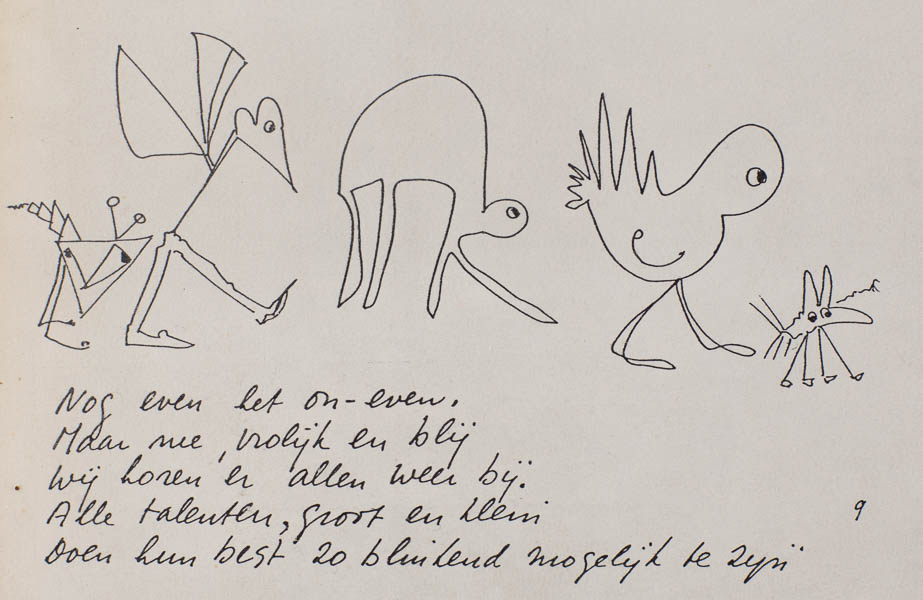 Nog even het on-even.
Maar nee, vrolijk en blij
Wij horen er allen weer bij.
Alle talenten, groot en klein
9
Doen hun best zo blinkend mogelijk te zijn